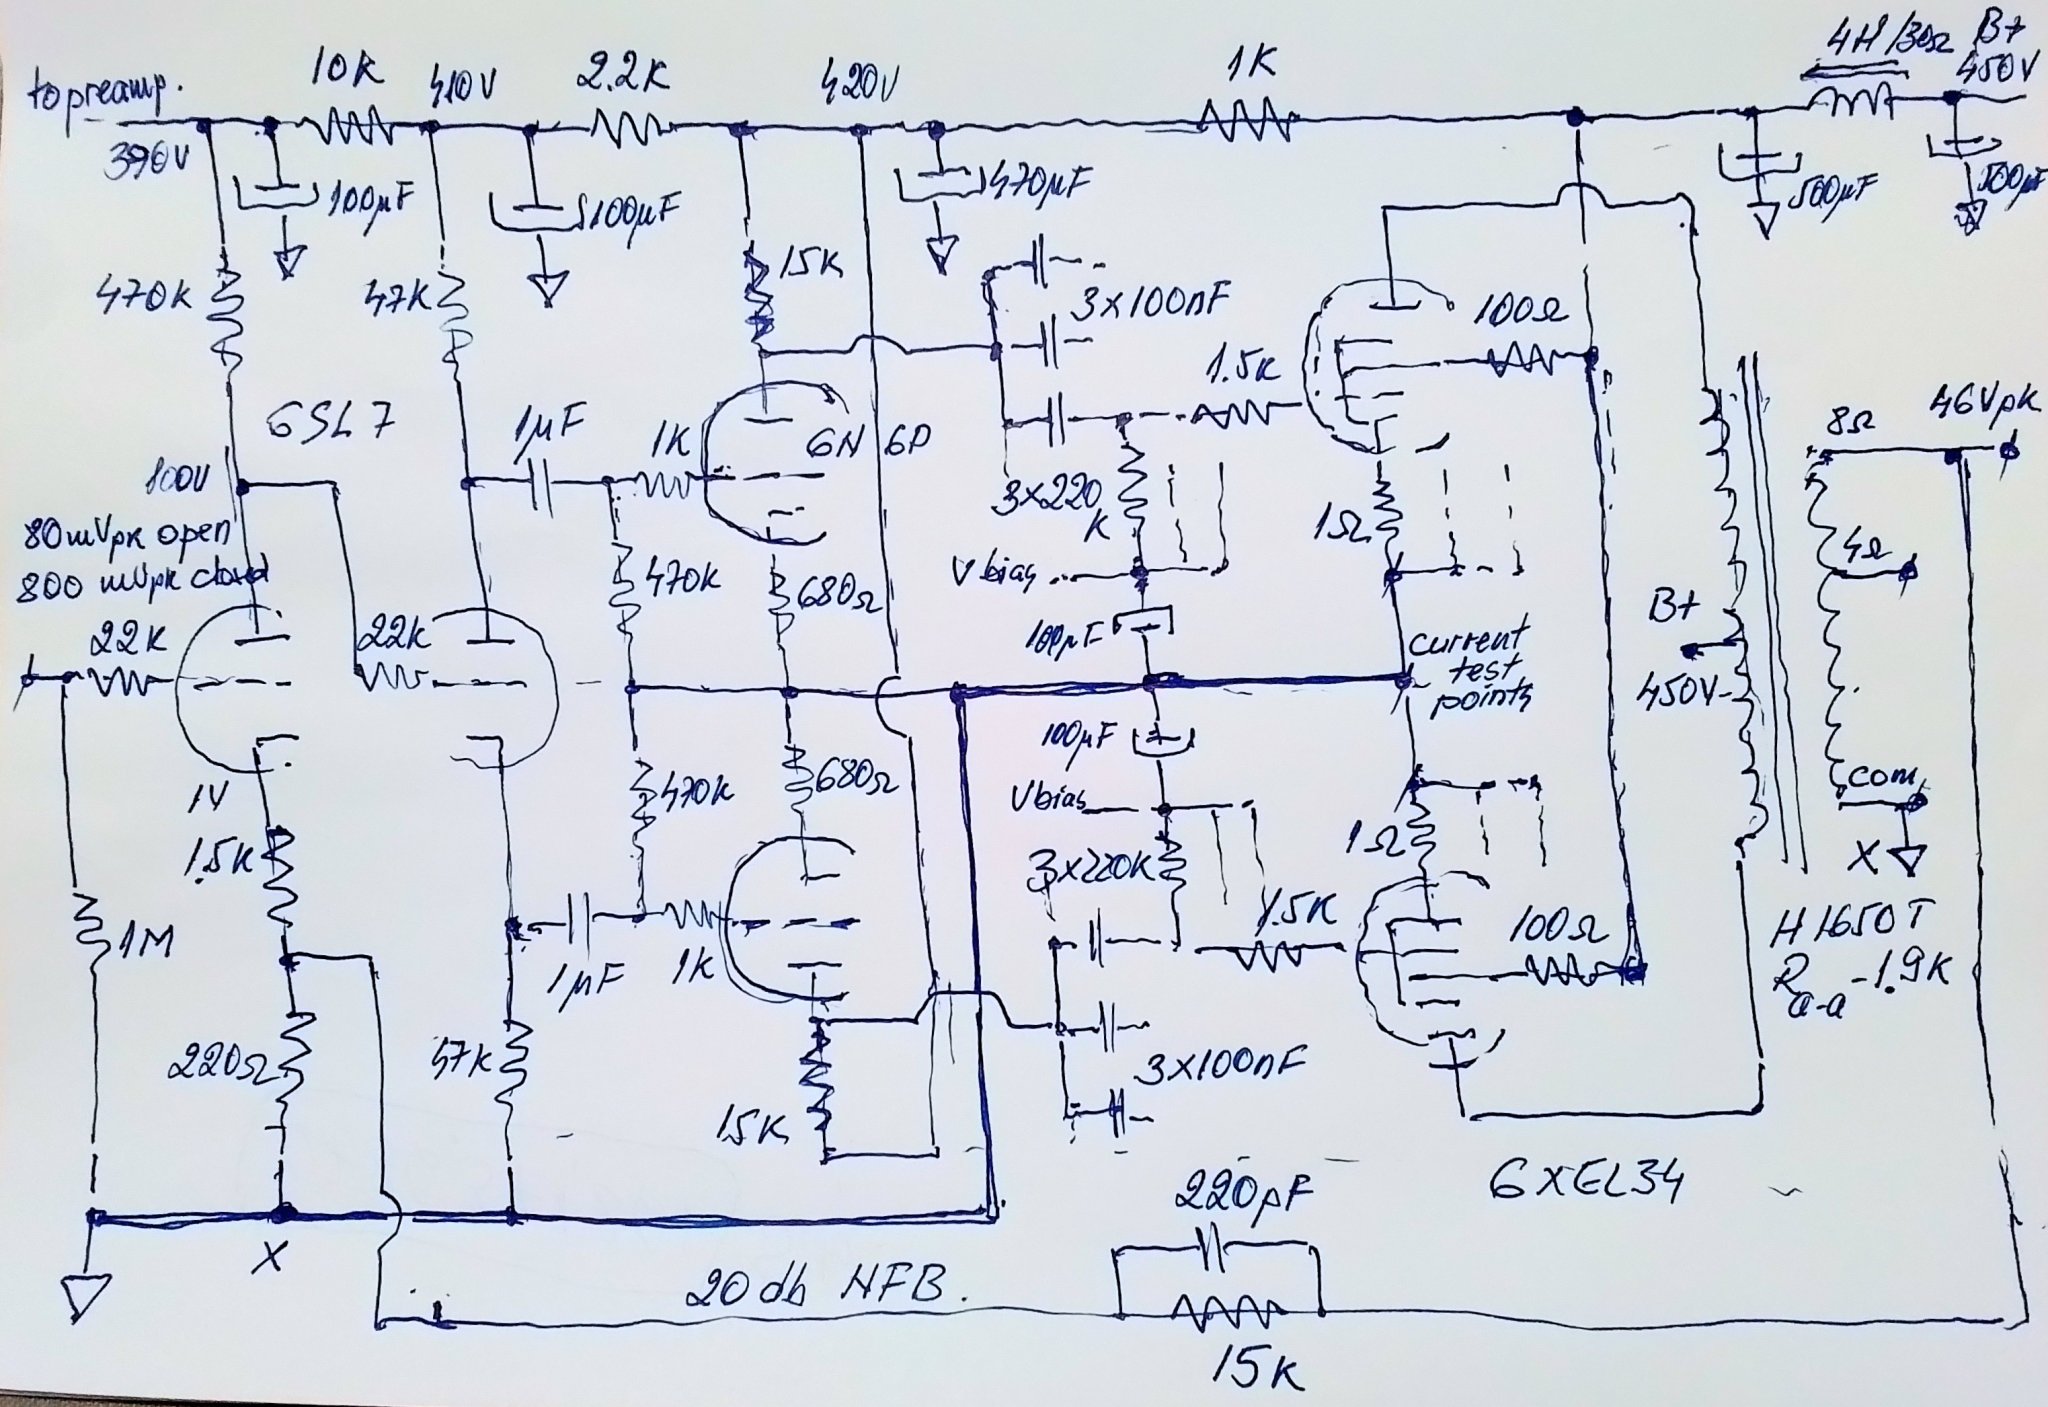 to preamp.
10K
410V
2.2K
420V
1K
4H/30Ω
B+
450V
390V
100µF
100µF
470µF
500µF
500µF
470K
47K
15K
3x100nF
100Ω
1.5K
6SL7
1µF
1K
6N6P
8Ω
46Vpk
100V
80mVpk open
800 mVpk closed
3x220
K
1Ω
4Ω
22K
22K
470K
680Ω
Vbias
100µF
B+
450V
current
test
points
1V
470K
680Ω
100µF
Vbias
1Ω
com
X
1.5K
3x220K
1.5K
100Ω
H1650T
Ra-a-1.9K
1M
1µF
1K
220Ω
47K
15K
3x100nF
6XEL34
220pF
X
20db NFB.
15K